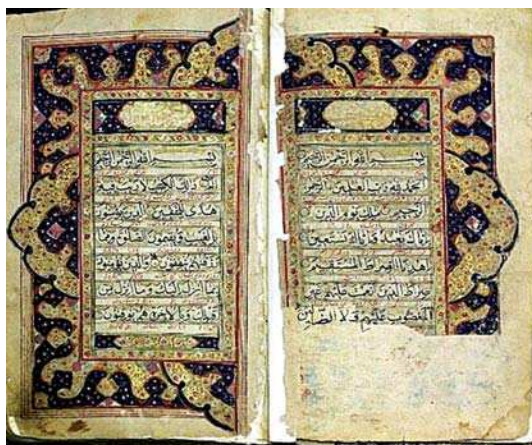 بسم الله الرحمن الرحيم
الحمد لله رب العلمين الرحمن
الرحيم ملك يوم الدين
اياك نعبد واياك نستعين
اهدنا الصراط المستقيم
صراط الذين انعمت عليهم غير
المغضوب عليهم ولا الضالين
بسم الله الرحمن الرحيم
الم ذلك الكتب لا ريب فيه
هدى للمتقين الذين يؤمنون
بالغيب ويقيمون الصلوة ومما
رزقنهم ينفقون والذين يؤمنون
بما انزل اليك وما انزل من
قبلك وبالاخرة هم يوقنون